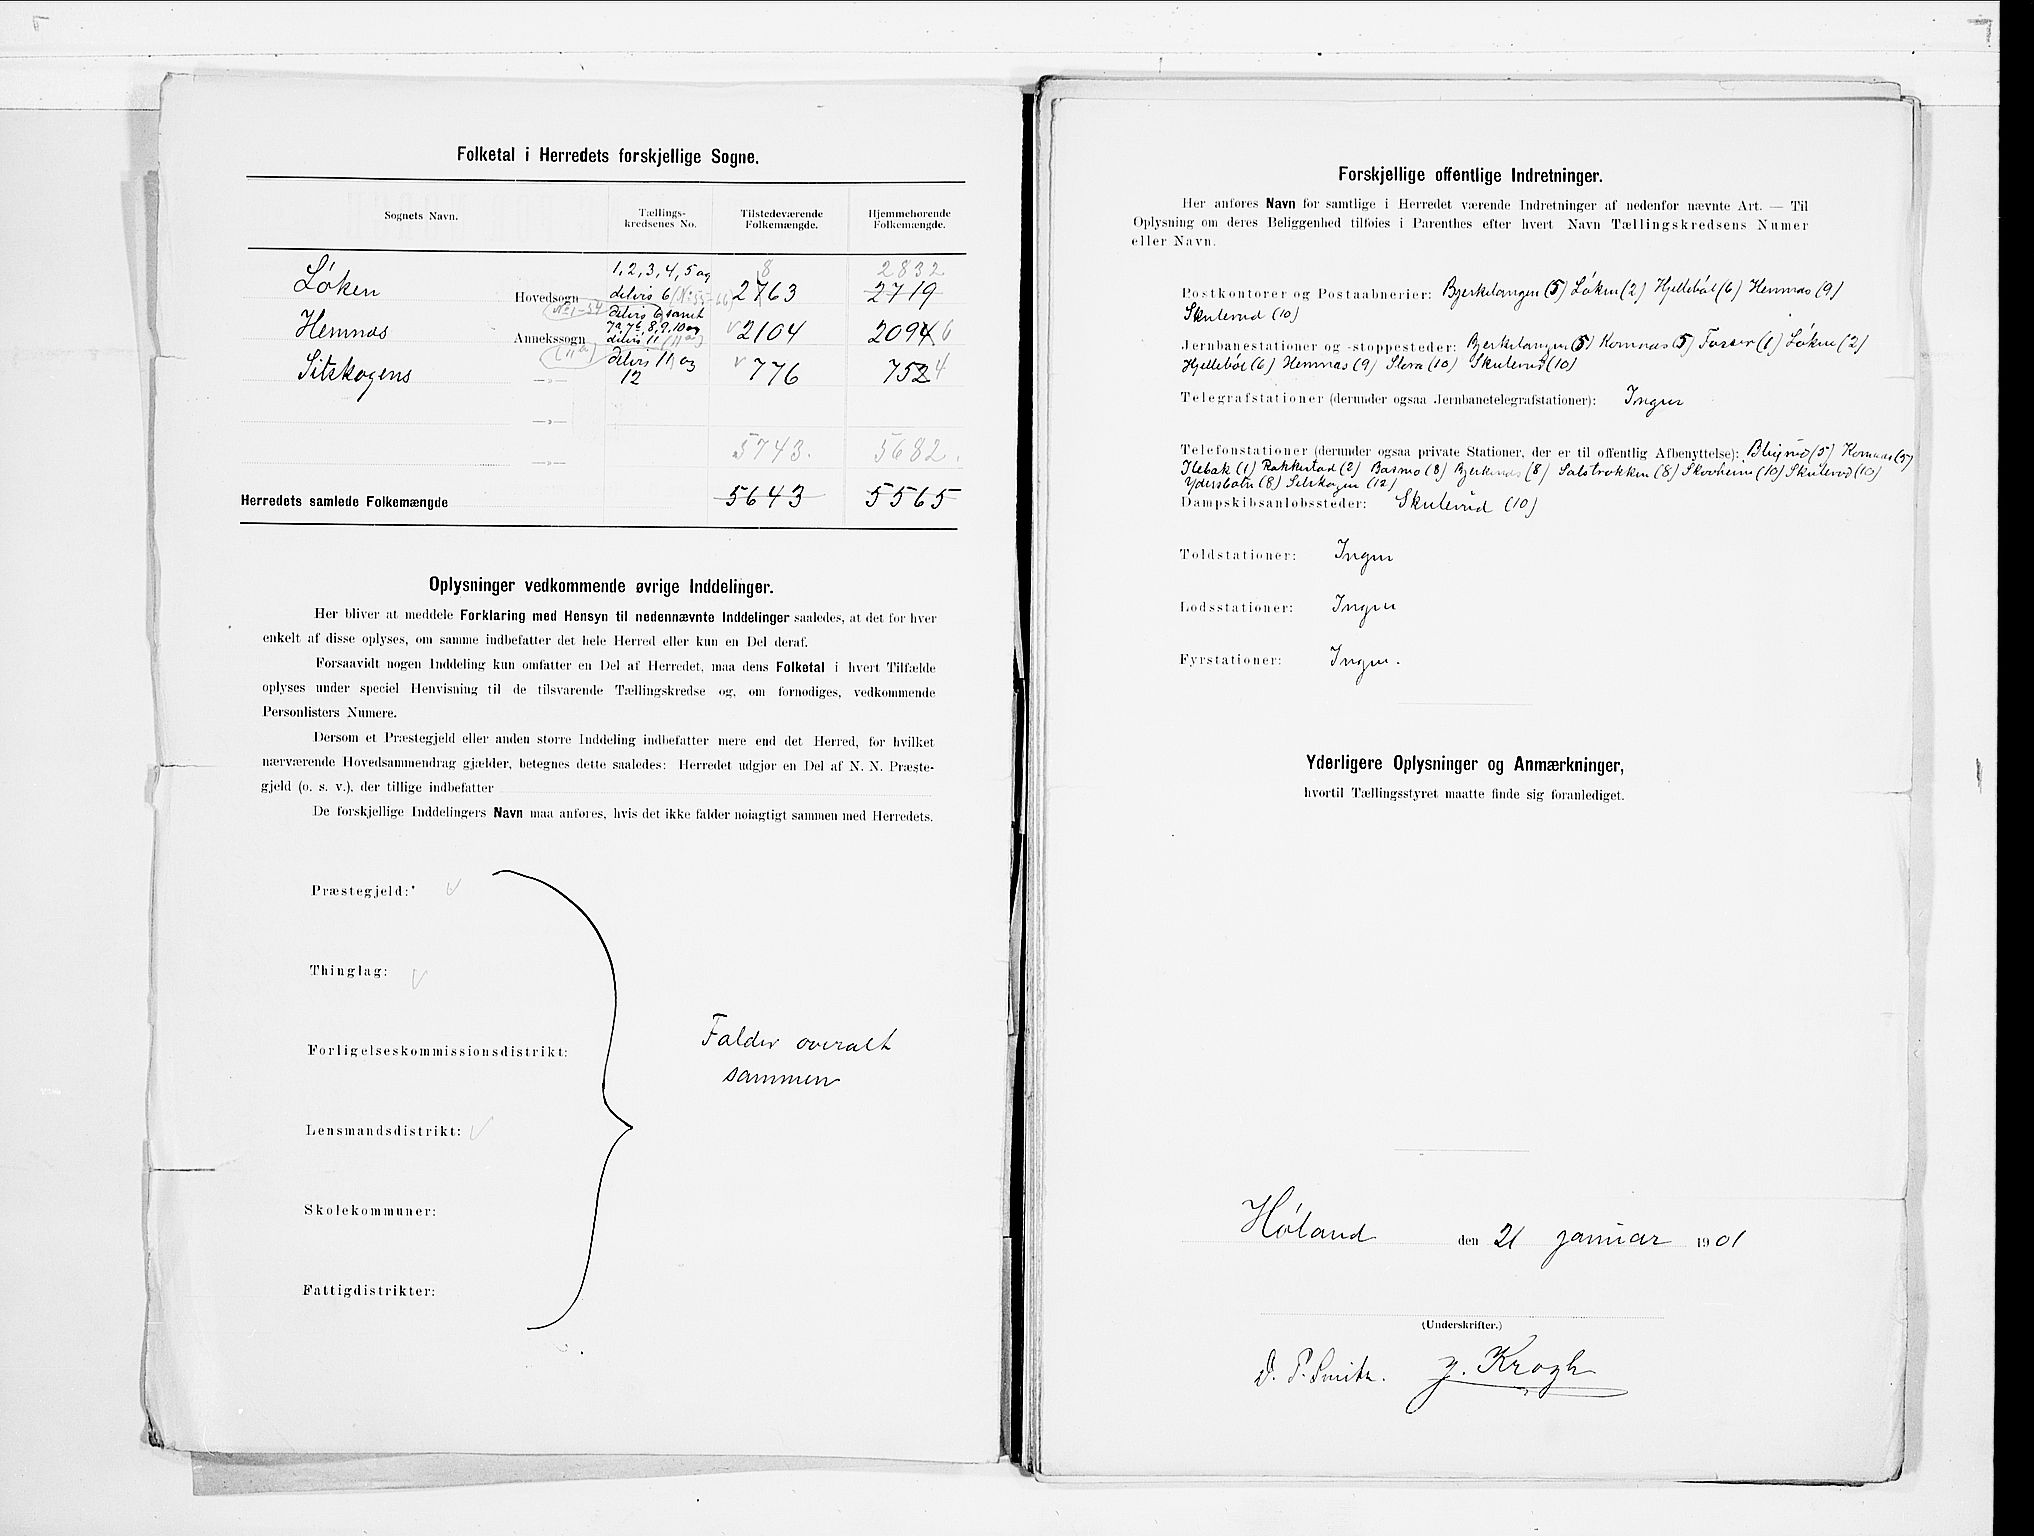 Folketal i Herredets forskjellige Sogne.
Sognets Navn.
Tællings-
kredsenes No.
Tilstedeværende
Folkemængde.
Hjemmehørende
Folkemængde.
Løken Hovedsogn 1, 2, 3, 4, 5 og 8 2832
delvis 6 (No 55-66) 2763 2719
(No 1-54)
Hemnæs Annekssogn delvis 6, samt
7a, 7b, 8, 9, 10 og 2104 2094 6
delvis 11 (11a)
Sitskogens —»— delvis 11, og 776 752 4
12
—»—
—»— 5743. 5682.
Herredets samlede Folkemængde 5643 5565
Oplysninger vedkommende øvrige Inddelinger.
Her bliver at meddele Forklaring med Hensyn til nedennævnte Inddelinger saaledes, at det for hver
enkelt af disse oplyses, om samme indbefatter det hele Herred eller kun en Del deraf.
Forsaavidt nogen Inddeling kun omfatter en Del af Herredet, maa dens Folketal i hvert Tilfælde
oplyses under speciel Henvisning til de tilsvarende Tællingskredse og, om fornødiges, vedkommende
Personlisters Numere.
Dersom et Præstegjeld eller anden større Inddeling indbefatter mere end det Herred, for hvilket
nærværende Hovedsammendrag gjælder, betegnes dette saaledes: Herredet udgjør en Del af N. N. Præste-
gjeld (o. s. v.), der tillige indbefatter
De forskjellige Inddelingers Navn maa anføres, hvis det ikke falder nøiagtigt sammen med Herredets.
Præstegjeld:
Thinglag:
Forligelseskommissionsdistrikt:
Falder overalt
sammen
Lensmandsdistrikt:
Skolekommuner:
Fattigdistrikter:
Forskjellige offentlige Indretninger.
Her anføres Navn for samtlige i Herredet værende Indretninger af nedenfor nævnte Art. — Til
Oplysning om deres Beliggenhed tilføies i Parenthes efter hvert Navn Tællingskredsens Numer
eller Navn.
Postkontorer og Postaabnerier: Bjerkelangen (5) Løken (2) Hjellebøl (6) Hemnæs (9)
Skulerud (10)
Jernbanestationer og -stoppesteder: Bjerkelangen (5) Komnæs (5) Fosser (1) Løken (2)
Hjellebøl (6) Hemnæs (9) Slora (10) Skulerud (10)
Telegrafstationer (derunder ogsaa Jernbanetelegrafstationer): Ingen
Telefonstationer (derunder ogsaa private Stationer, der er til offentlig Afbenyttelse): (5) Komnæs (5)
Ilebæk (1) Rakkestad (2) Basmo (8) Bjerknæs (8) (8) Skovheim (10) Skulerud (10)
(8) Setskogen (12)
Dampskibsanløbssteder: Skulerud (10)
Toldstationer: Ingen
Lodsstationer: Ingen
Fyrstationer: Ingen.
Yderligere Oplysninger og Anmærkninger,
hvortil Tællingsstyret maatte finde sig foranlediget.
Høland den 21 januar 1901
(Underskrifter.)
O. P. Smith. J. Krogh